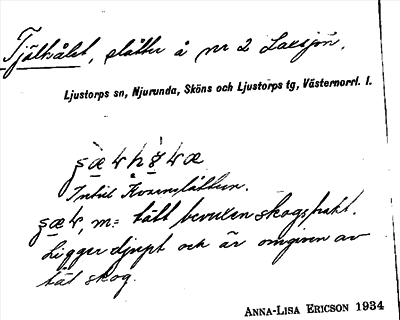 Tjälhålet, slåtter å nr 2 Laxsjön.
Ljustorps sn, Njurunda, Sköns och Ljustorps tg, Västernorrl. l.
Intill Kvarnslåtten.
m = tätt bevuxen skogstrakt.
Ligger djupt och är omgiven av
tät skog.
ANNA-LISA ERICSON 1934